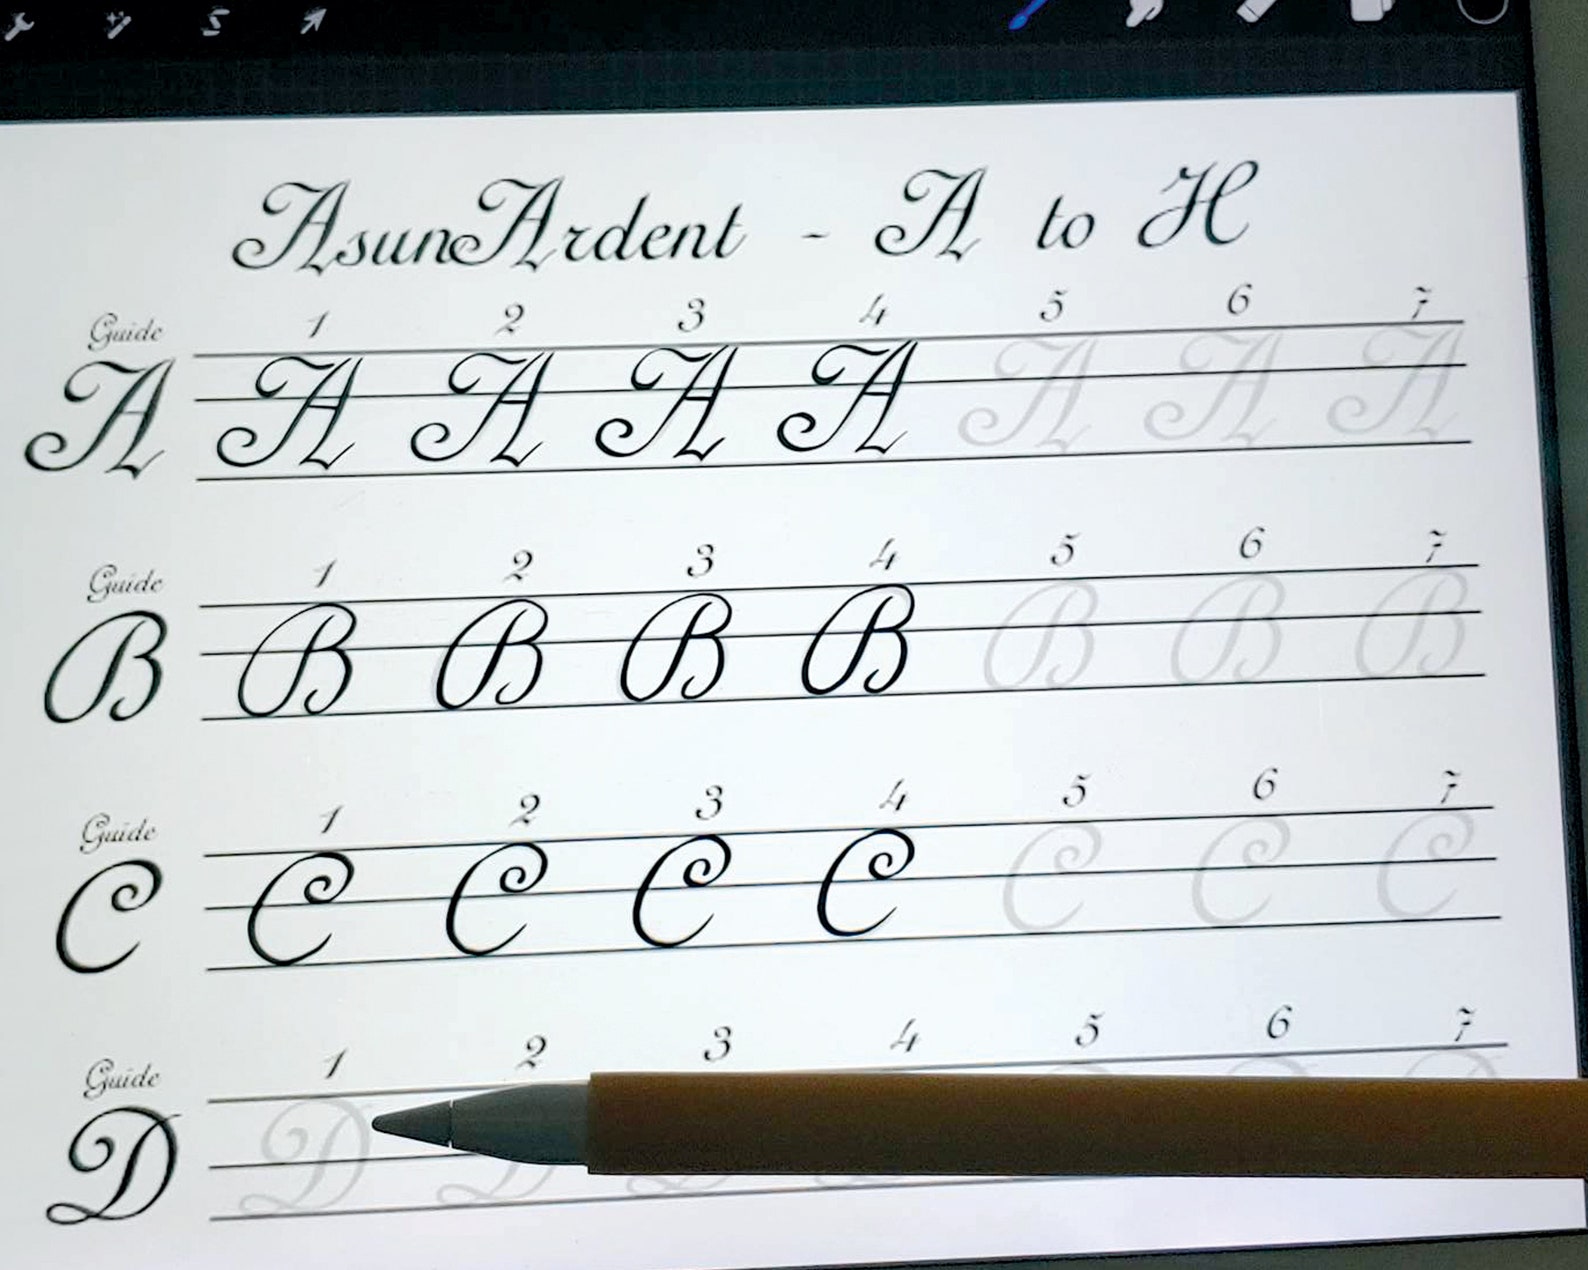 AsunArdent - A to H
Guide 1 2 3 4 5 6 7
A A A A A A A A
Guide 1 2 3 4 5 6 7
B B B B B B B B
Guide 1 2 3 4 5 6 7
C C C C C C C C
Guide 1 2 3 4 5 6 7
D D D D D